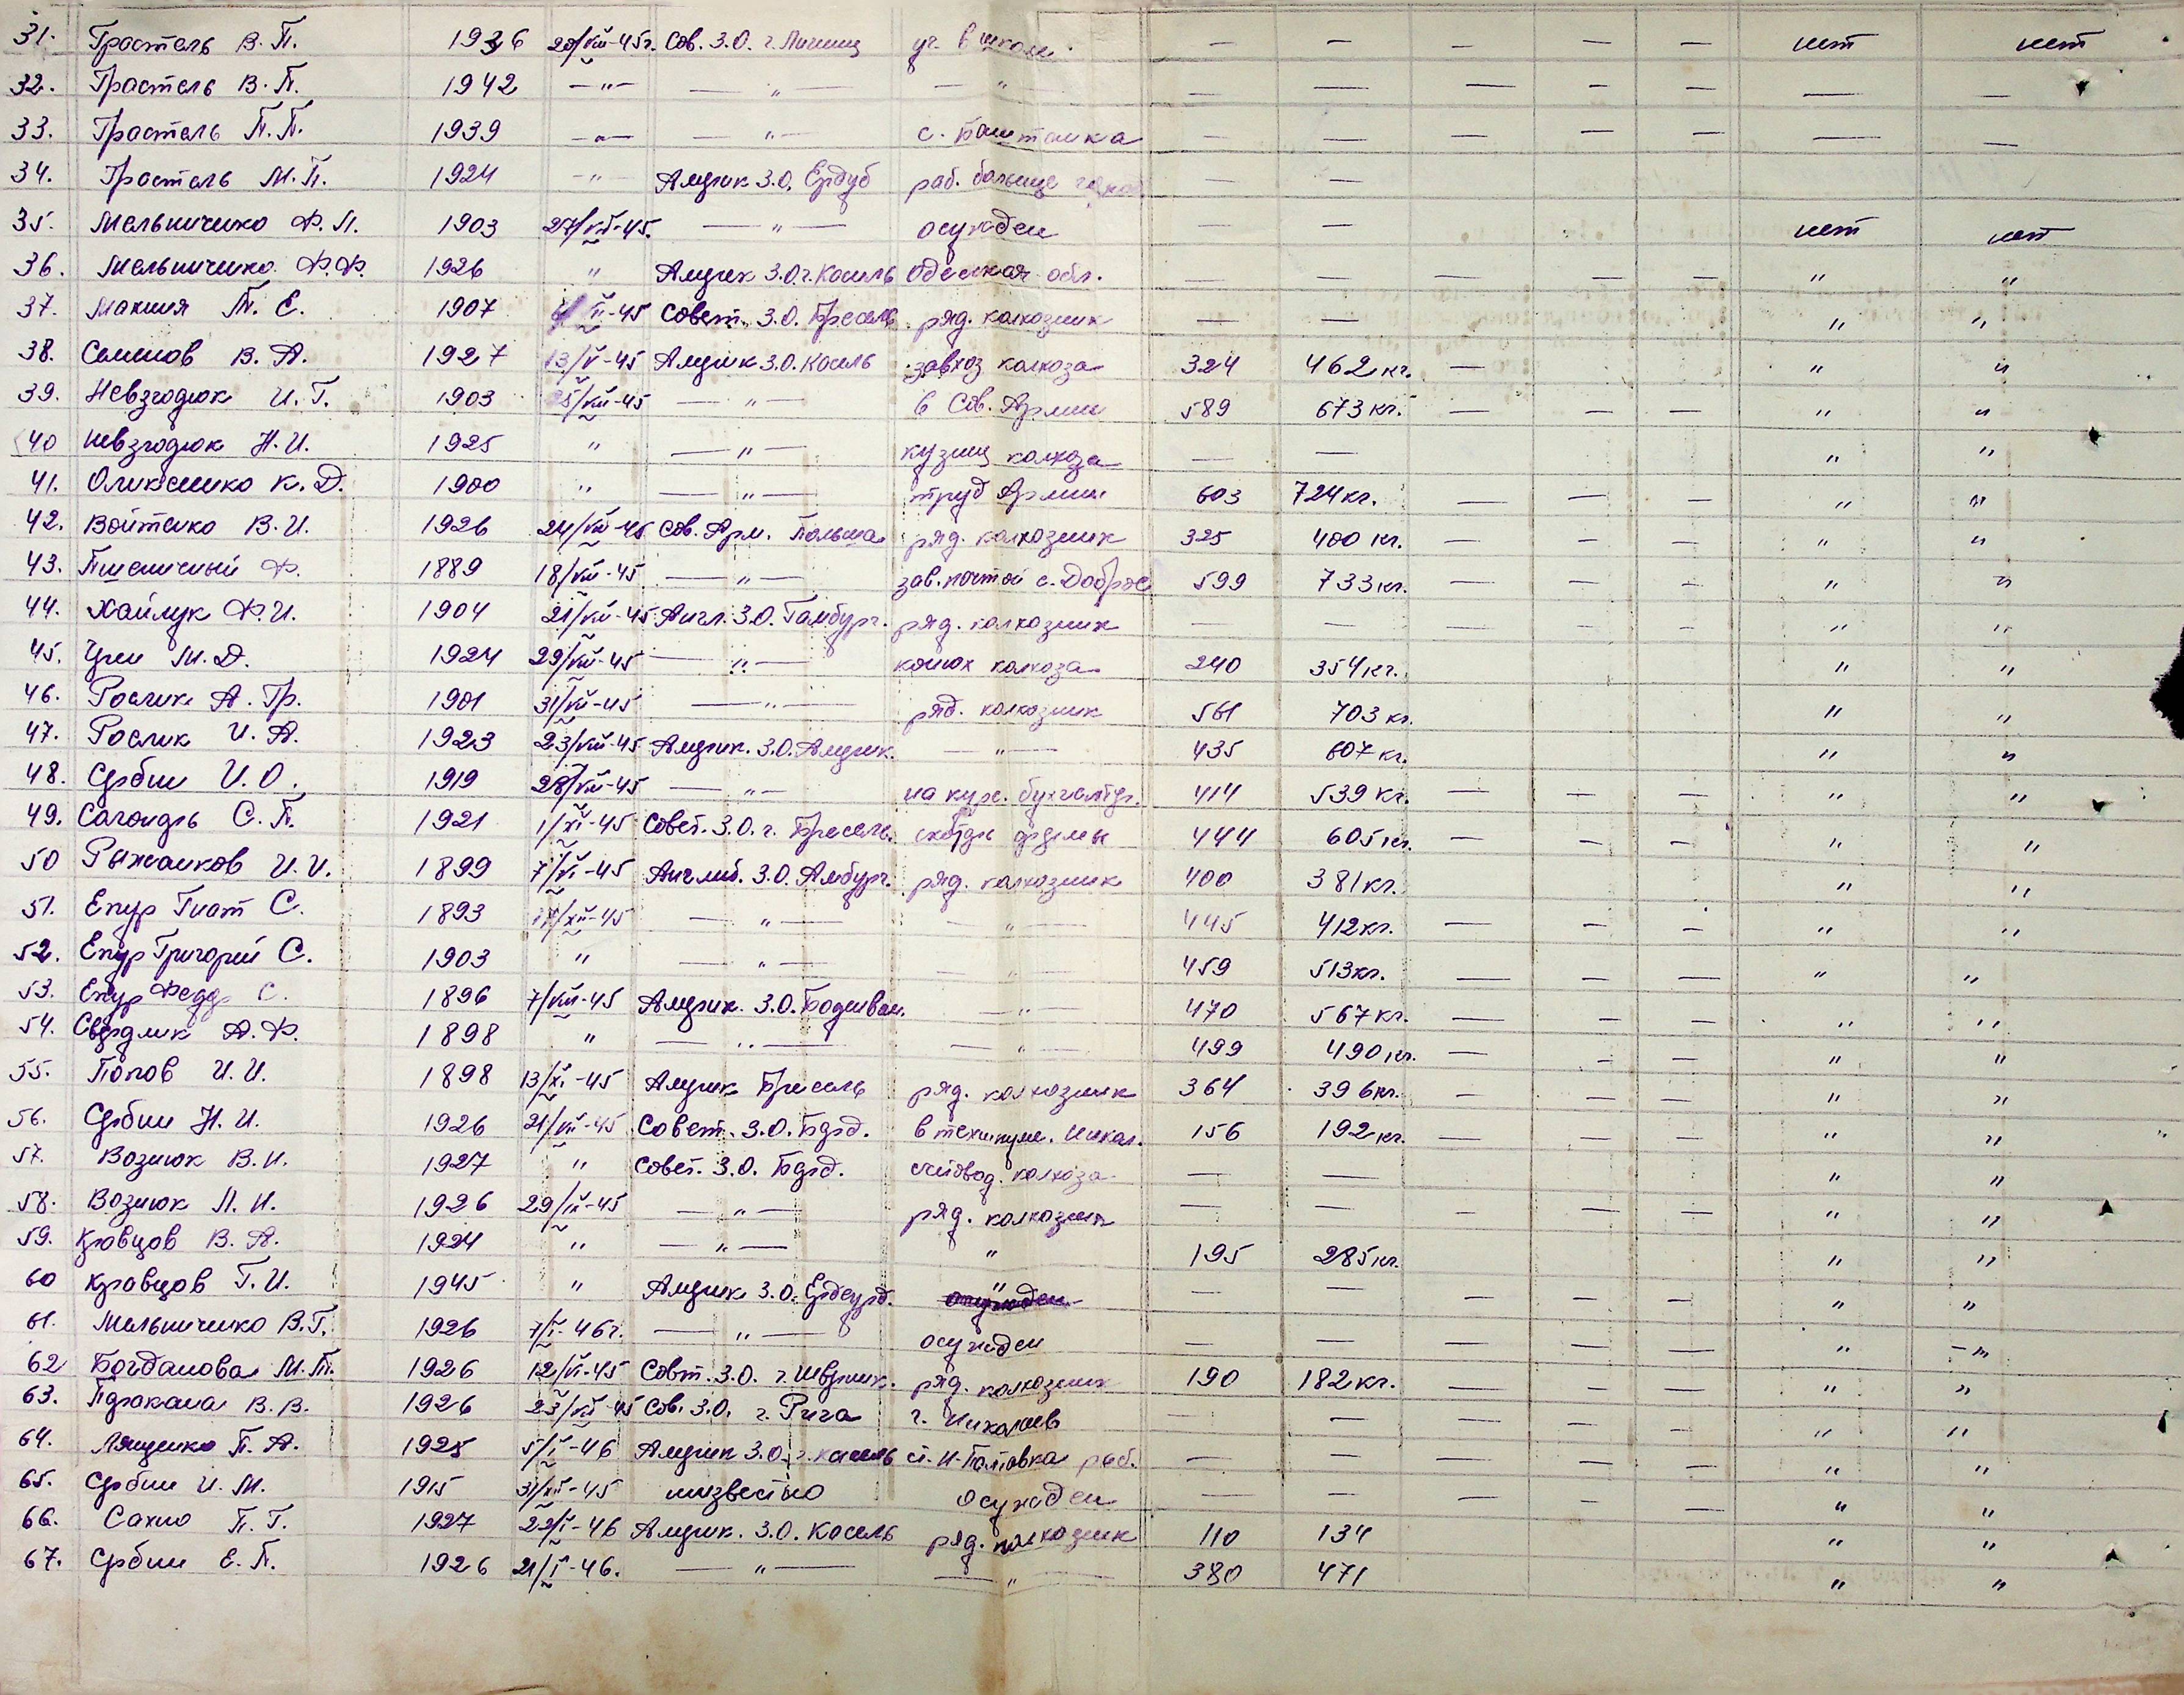 31. Грастель В. П. 1936 20/VIII-45г. Сов. З.О. г. уч. в школе — — — — — нет нет
32. Грастель В. П. 1942 —"— —"— —"— — — — — — — —
33. Грастель П. П. 1939 —"— —"— с. Баштанка — — — — — — —
34. Грастель М. П. 1924 —"— Америк З.О. раб. — —
35. Мельниченко Ф. П. 1903 27/VII-45. —"— осужден — — нет нет
36. Мельниченко Ф. Ф. 1926 " Америк З.О. г. Касель Одесская обл. — — — — — " "
37. Е. 1907 II-45 Совет. З.О. Бреславль ряд. колхозник — — " "
38. Семенов В. А. 1927 13/V-45 Америк З.О. Касель завхоз колхоза 324 462 кг. — " "
39. Невзгодюк И. Г. 1903 25/VIII-45 —"— в Сов. Армии 589 673 кг. — — — " "
40 Невзгодюк Н. И. 1925 " —"— кузнец колхоза — — " "
41. Оликсенко К. Д. 1900 " —"— труд Армии 603 724 кг. — — — " "
42. Войтенко В. И. 1926 24/VIII-45 Сов. Арм. Польша ряд. колхозник 325 400 кг. — — — " "
43. Пшеничный Ф. 1889 18/VIII-45 —"— зав. почтой с. Доброе 599 733 кг. — — — " "
44. Хайлук Ф. И. 1904 21/VII-45 Англ. З.О. Гамбург. ряд. колхозник — — — — — " "
45. М. Д. 1924 29/VIII-45 —"— конюх колхоза 240 354 кг. " "
46. Рослик А. Гр. 1901 31/VII-45 —"— ряд. колхозник 561 703 кг. " "
47. Рослик И. А. 1923 23/VIII-45 Америк. З.О. Америк. —"— 435 607 кг. " "
48. Сербин И. О. 1919 28/VIII-45 —"— на курс. бухгалтер. 414 539 кг. — — — " "
49. С. П. 1921 1/XI-45 Совет. З.О. г. Бреславль 444 605 кг. — — — " "
50 Рыжанков И. И. 1899 7/VI-45 Англий. З.О. Амбург. ряд. колхозник 400 381 кг. " "
51. Епур Гнат С. 1893 17/XII-45 —"— —"— 445 412 кг. — — — " "
52. Епур Григорий С. 1903 " —"— —"— 459 513 кг. — — — " "
53. Епур Федор С. 1896 7/VIII-45 Америк. З.О. —"— 470 567 кг. — — — " "
54. Свердлик А. Ф. 1898 " —"— —"— 499 490 кг. — — — " "
55. Попов И. И. 1898 13/XI-45 Америк Бресель ряд. колхозник 364 396 кг. — — — " "
56. Сербин Н. И. 1926 21/VII-45 Совет. З.О. Берд. в техникуме. Никол. 156 192 кг. — — — " "
57. Вознюк В. И. 1927 " Совет. З.О. Берд. счетовод. колхоза — — " "
58. Вознюк Л. И. 1926 29/IX-45 —"— ряд. колхозник — — — — — " "
59. Кравцов В. А. 1924 " —"— " 195 285 кг. " "
60 Кравцов Г. И. 1945 " Америк З.О. " — — — — — " "
61. Мельниченко В. Г. 1926 7/I-46г. —"— осужден — — — — — " "
62 Богданова М. М. 1926 12/VI-45 Совт. З.О. г. Шверник. ряд. колхозник 190 182 кг. — — — " "
63. В. В. 1926 23/VII-45 Сов. З.О. г. Рига г. Николаев — — — — — " "
64. Лященко П. А. 1925 5/I-46 Америк З.О. г. Касель ст. Н-Полтовка раб. — — — — — " "
65. Сербин И. М. 1915 31/XII-45 неизвестно осужден — — — — — " "
66. Сахно П. Г. 1927 22/I-46 Америк. З.О. Касель ряд. колхозник 110 134 " "
67. Сербин Е. П. 1926 21/I-46. —"— —"— 380 471 " "